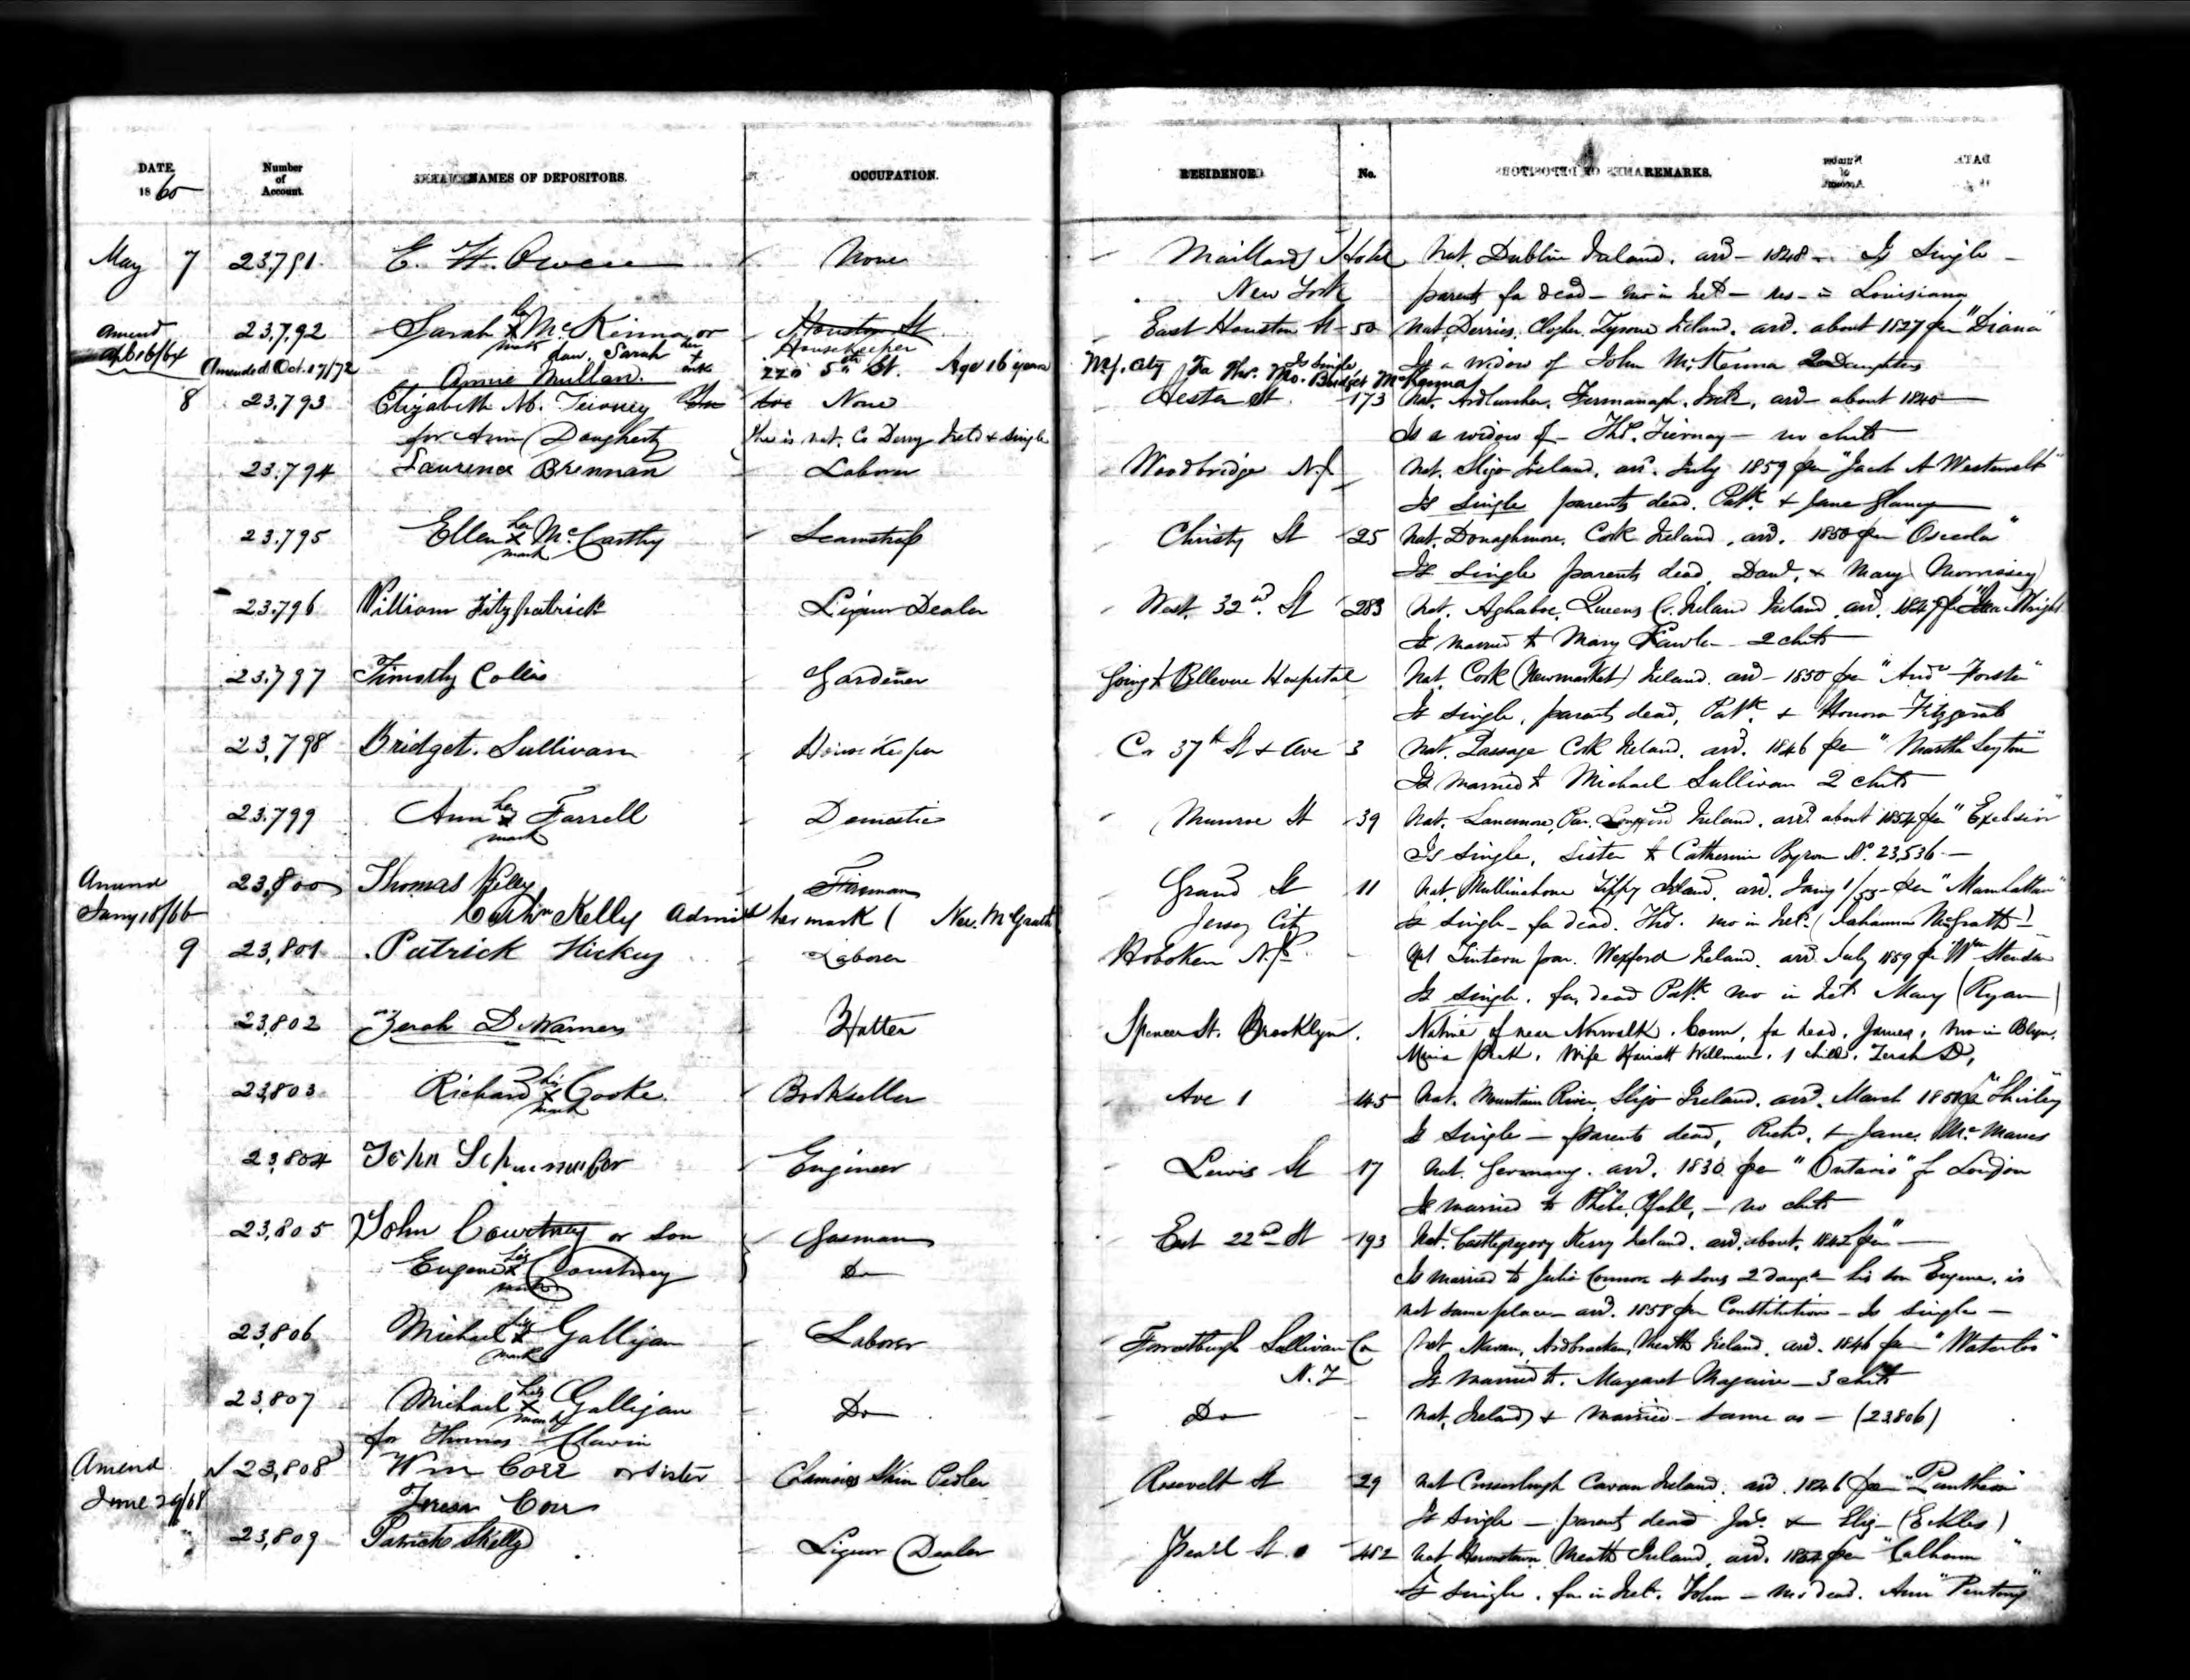 DATE. Number of Account. NAMES OF DEPOSITORS. OCCUPATION. RESIDENCE. No. REMARKS.
1860
May 7 23,791 E. H. Owen None Maillards Hotel Nat. Dublin Ireland. arrd - 1848 - Is Single -
New York parents fa dead - mo in Ireld - res - in Louisiana
Amend 23,792 Sarah her x mark McKenna or Houston St East Houston St 50 Nat. Derries, Clogher, Tyrone Ireland. arrd. about 1827 per "Diana"
Housekeeper
Amended Oct. 17/72 daw. Sarah her x mark
Annie Mullan. 220 5th St. Age 16 years N.Y. City Is Single Is a widow of John McKenna 2 Daughters
Fa Thos. Mo. Bridget McKenna
8 23,793 Elizabeth M. Tierney None Hester St 173 Nat. Fermanagh, Ireld, arrd - about 1840
for Ann Dougherty She is nat. Co Derry Ireld & Single Is a widow of - Thos. Tierney - no child
23,794 Laurence Brennan Laborer Woodbridge N.J. Nat. Sligo Ireland, arr. July 1859 per "Jacob A Westervelt"
Is Single parents dead. Patk. & Jane Glancy
23,795 Ellen her x mark McCarthy Seamstress Christy St 25 Nat. Donaghmore, Cork Ireland, arrd. 1850 per Osceola"
Is Single parents dead, Danl. & Mary Morrissey
23,796 William Fitzpatrick Liquor Dealer West 32nd St 283 Nat. Aghaboe, Queens Co. Ireland Ireland, arrd. 1847 per
Is Married to Mary 2 childn
23,797 Timothy Collins Gardener Going to Bellevue Hospital Nat. Cork (Newmarket) Ireland. arrd - 1850 per "Andw Forster"
Is Single, parents dead, Patk. & Honora Fitzgerald
23,798 Bridget Sullivan Housekeeper Cor 37th St & Ave 3 Nat. Passage Cork Ireland. arrd. 1846 per "Martha
Is Married to Michael Sullivan 2 childn
23,799 Ann her x mark Farrell Domestic Munroe St 39 Nat. Par. Longford Ireland. arrd. about 1854 per "Excelsior"
Is Single, Sister to Catherine Byron No. 23,536 -
Amend 23,800 Thomas Kelly Fireman Grand St 11 Nat. Mullinahone Tippy Ireland. arrd. Jany 1/53 per "Manhattan"
Jany 18/66 Cathn Kelly Admix her mark ( Nee. McGrath Jersey City Is Single - fa dead. Thos. mo in Ireld. (Johanna McGrath)
9 23,801 Patrick Hickey Laborer Hoboken N.J. Nat Tintern par. Wexford Ireland. arrd July 1859 per Wm
Is Single. fa dead Patk mo in Ireld Mary (Ryan)
23,802 Zerah D Warner Hatter Spencer St. Brooklyn. Native of near Norwalk. Conn, fa dead, James, mo in Bklyn,
Maria Peck, Wife Hariett Wellman, 1 child. Zerah D,
23,803 Richard his x mark Cooke Bookseller Ave 1 145 Nat. Mountain River, Sligo Ireland. arrd. March 1850 per "Shirley"
Is Single - parents dead, Richd. & Jane McManus
23,804 John Schumacher Engineer Lewis St 17 Nat. Germany. arrd. 1830 per "Ontario" fr London
Is married to Phebe - no childn
23,805 John Courtney or Son Gasman East 22nd St 193 Nat. Castlegregory Kerry Ireland. arrd. about 1842 per "
Eugene his x mark Courtney Do Is Married to Julia Connor 4 Sons 2 Daugs his son Eugene, is
nat same place - arrd. 1858 per Constitution - Is single -
23,806 Michael his x mark Galligan Laborer Forrestburgh Sullivan Co Nat Navan, Ardbracken, Meath Ireland. arrd. 1846 per "Waterloo"
N.Y. Is Married to. Margaret Maguire - 3 childn
23,807 Michael his x mark Galligan Do Do Nat. Ireland & Married - same as - (23,806)
for Thomas Clavin
Amend 23,808 Wm Corr or sister Chamois Skin Pedler Roosevelt St 29 Nat Cavan Ireland. arrd. 1846 per "Panthea"
June 29/68 Teresa Corr Is Single - parents dead Jas. & Eliz - (Eckles)
" 23,809 Patrick Skelly Liquor Dealer Pearl St. 482 Nat Meath Ireland, arrd. per "Calhoun"
Is Single. fa in Ireld. John - mo dead. Ann "Pentony"